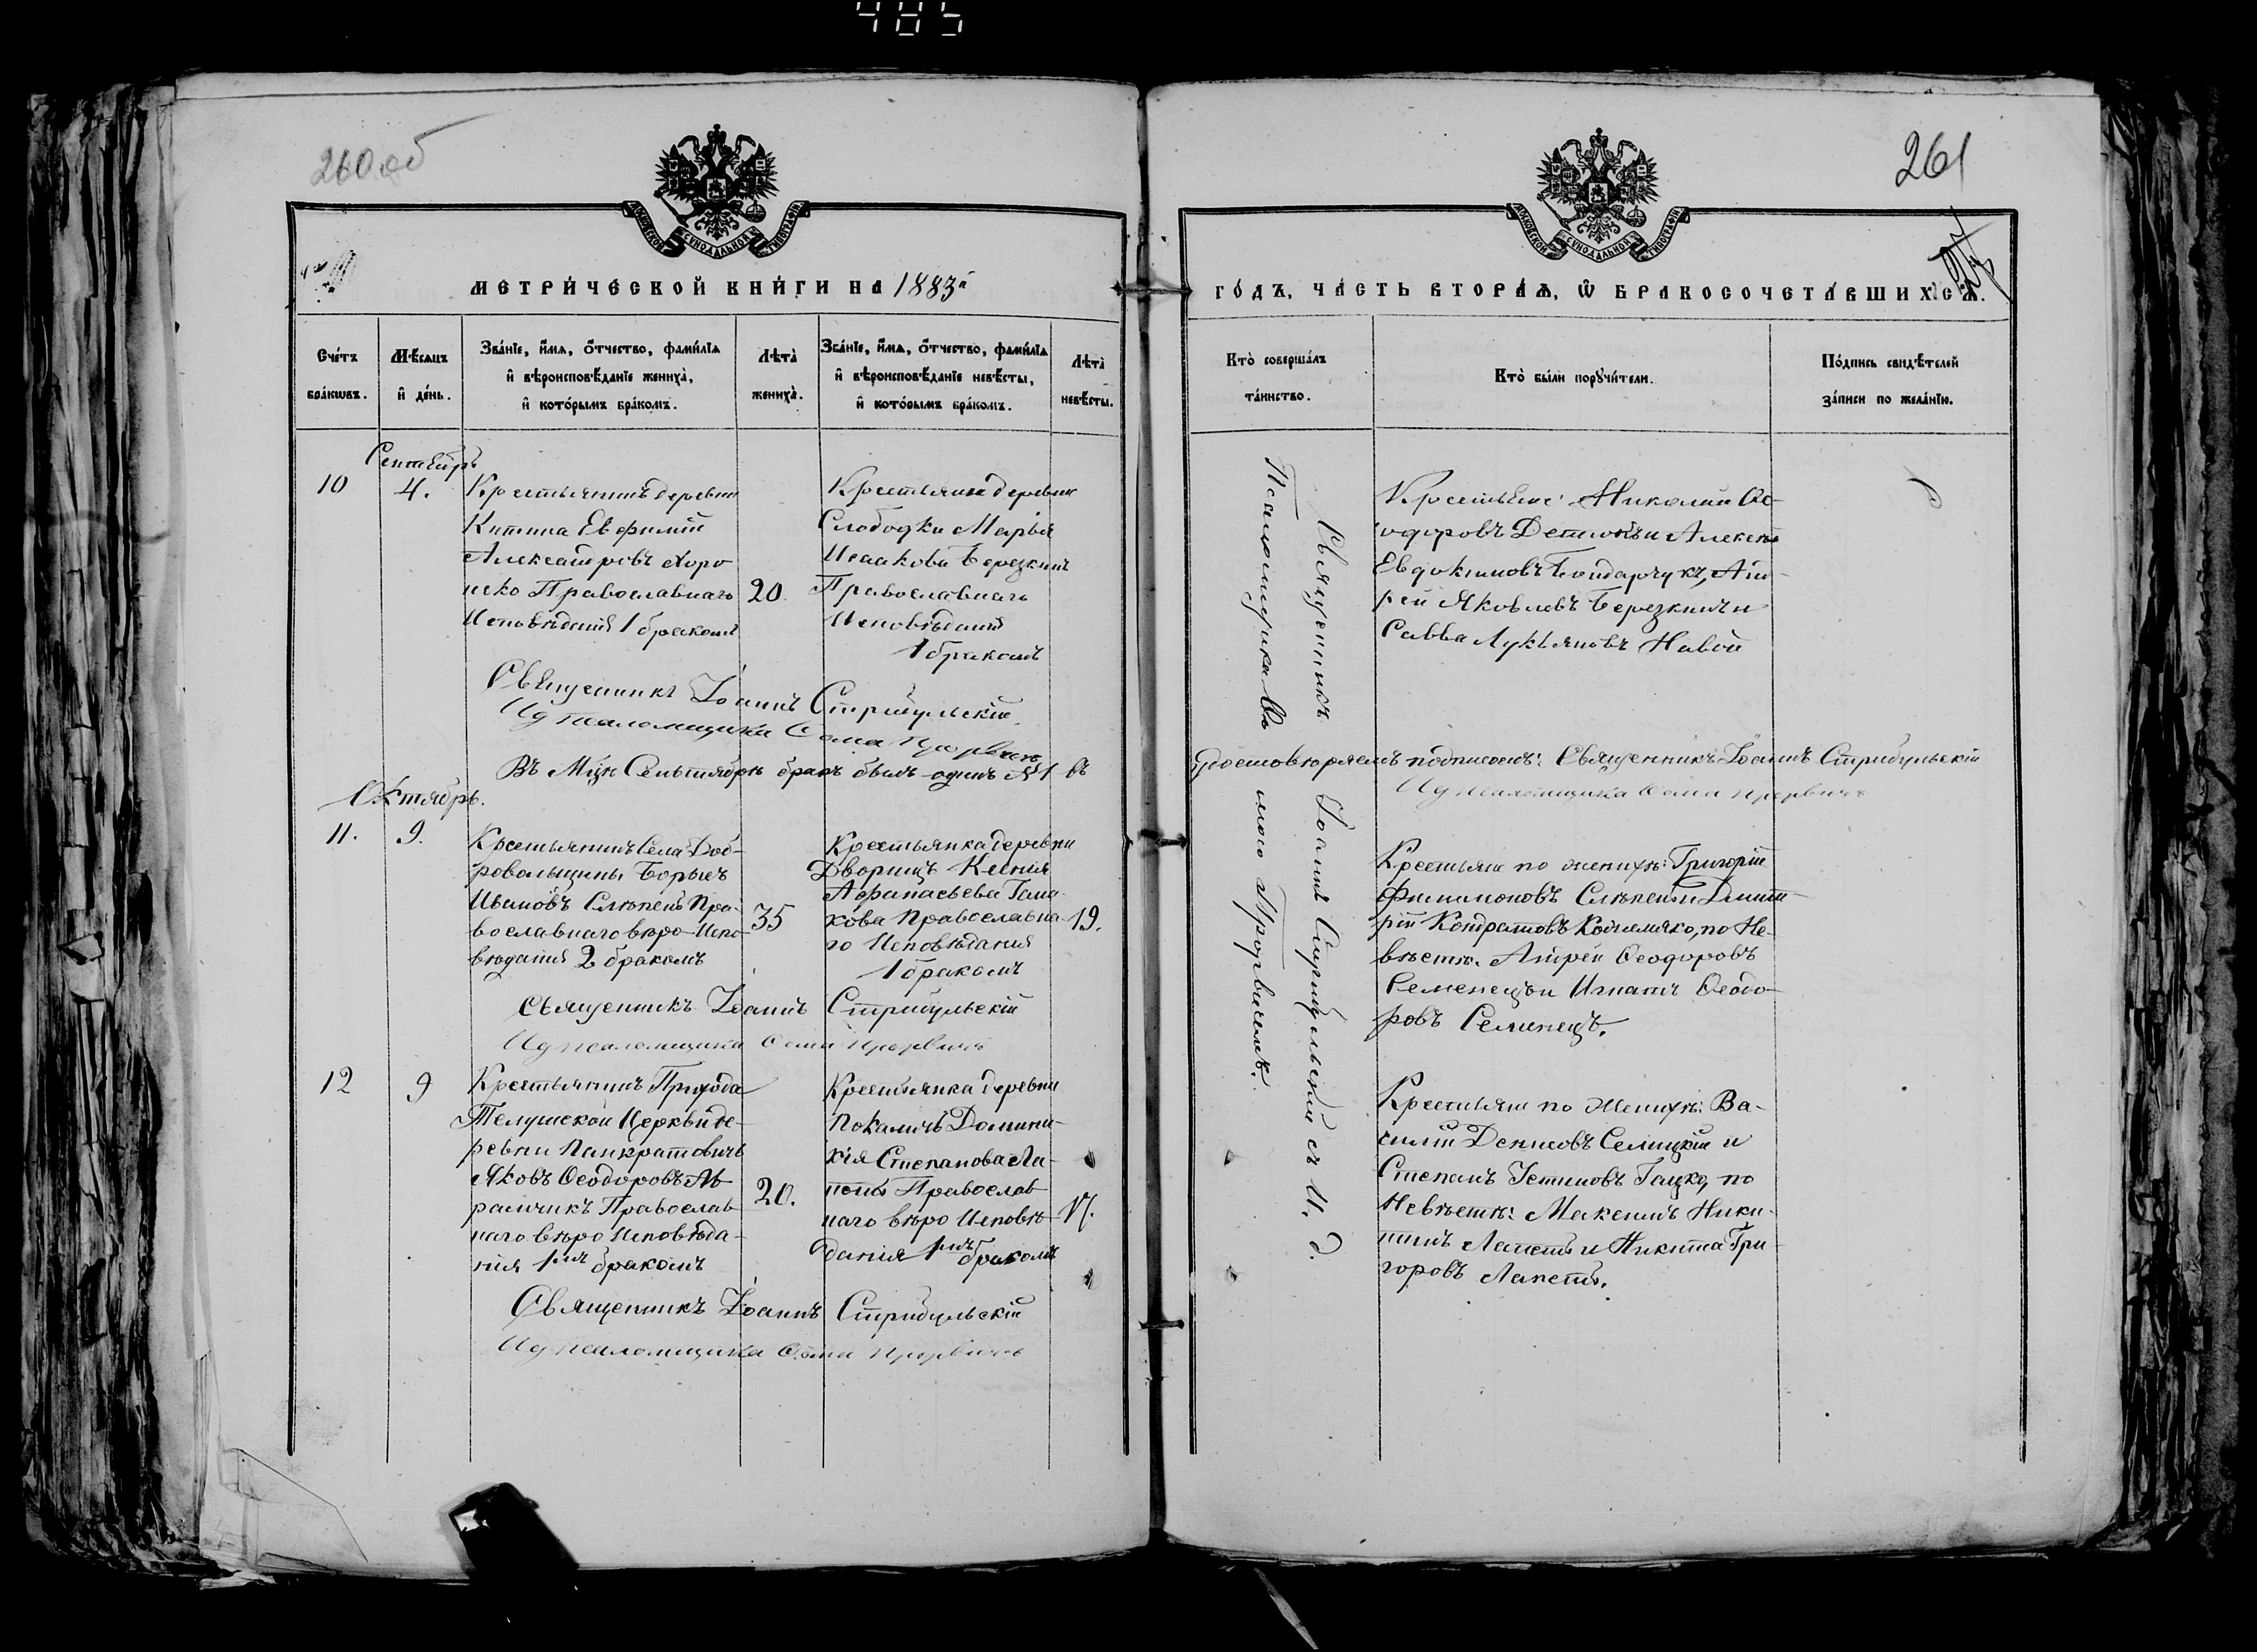 485
260 об
261
МОСКОВСКОЙ СѴНОДАЛЬНОЙ ТИПОГРАФІИ
МОСКОВСКОЙ СѴНОДАЛЬНОЙ ТИПОГРАФІИ
МЕТРИ́ЧЕСКОЙ КНИ́ГИ НА 1883й
ГО́ДЪ, ЧА́СТЬ ВТОРА́Ѧ, Ѽ БРАКОСОЧЕТА́ВШИХСѦ.
Сче́тъ бра́кѡвъ.
Мѣ́сѧцъ и҆ де́нь.
Зва́нїе, и҆́мѧ, ѻ҆́тчество, фами́лїѧ и҆ вѣроисповѣ́данїе жениха̀, и҆ кото́рымъ бра́комъ.
Лѣта̀ жениха̀.
Зва́нїе, и҆́мѧ, ѻ҆́тчество, фами́лїѧ и҆ вѣроисповѣ́данїе невѣ́сты, и҆ кото́рымъ бра́комъ.
Лѣта̀ невѣ́сты.
Кто̀ соверша́лъ та́инство.
Кто̀ бы́ли порꙋчи́тели.
По́дпись свидѣ́телей за́писи по жела́нїю.
Сентябрь
10
4.
Крестьянинъ деревни
Китина Евфимій
Александровъ Хоро
шко Православнаго
Исповѣданія 1 бракомъ
20.
Крестьянка деревни
Слободки Марья
Исаакова Березкинъ
Православнаго
Исповѣданія
1 бракомъ
Крестьяне: Николай Ѳе-
одоровъ Алексѣй
Евдокимовъ Бондарчукъ, Анд-
рей Яковлевъ Березкинъ и
Савва Лукьяновъ Навой
Священникъ Іоаннъ Стрибульскій
Ид псаломщика Ѳома Прорвичъ
Въ Мцѣ Сентябрѣ бракъ былъ одинъ №1 въ
удостовѣряемъ подписомъ: Священникъ Іоаннъ Стрибульскій
Ид псаломщика Ѳома Прорвичъ
Священникъ Іоаннъ Стрибульскій съ И. д.
Псаломщика Ѳомою Прорвичемъ.
Октябрь.
11.
9.
Крестьянинъ Села Доб-
ровольщины Борысъ
Ивановъ Слѣпень Пра-
вославнаго вѣро-Испо-
вѣданія 2 бракомъ
35
Крестьянка деревни
Дворищъ Ксенія
Афанасьева
Православна-
го Исповѣданія
1 бракомъ
19.
Крестьяне по женихѣ: Григорій
Филимоновъ Слѣпень и Дмит-
рій Кондратовъ по Не-
вѣстѣ. Андрей Ѳеодоровъ
Семенецъ и Игнатъ Ѳеодо-
ровъ Семенецъ.
Священникъ Іоаннъ Стрибульскій
Ид псаломщика Ѳома Прорвичъ
12
9
Крестьянинъ Прихода
Телушской Церкви де-
ревни Панкратовичъ
Яковъ Ѳеодоровъ Аб-
рамчикъ Православ
наго вѣро Исповѣда-
нія 1мъ бракомъ
20.
Крестьянка деревни
Покаличъ Домини-
кія Степанова Ла-
петъ Православ
наго вѣро Исповѣ-
данія 1мъ бракомъ
17.
Крестьяне по Женихѣ: Ва-
силій Денисовъ Селицкій и
Степанъ Устиновъ Гацко, по
Невѣстѣ: Максимъ Ники-
тинъ Лапетъ и Никита Гри-
горовъ Лапетъ.
Священникъ Іоаннъ Стрибульскій
Ид псаломщика Ѳома Прорвичъ